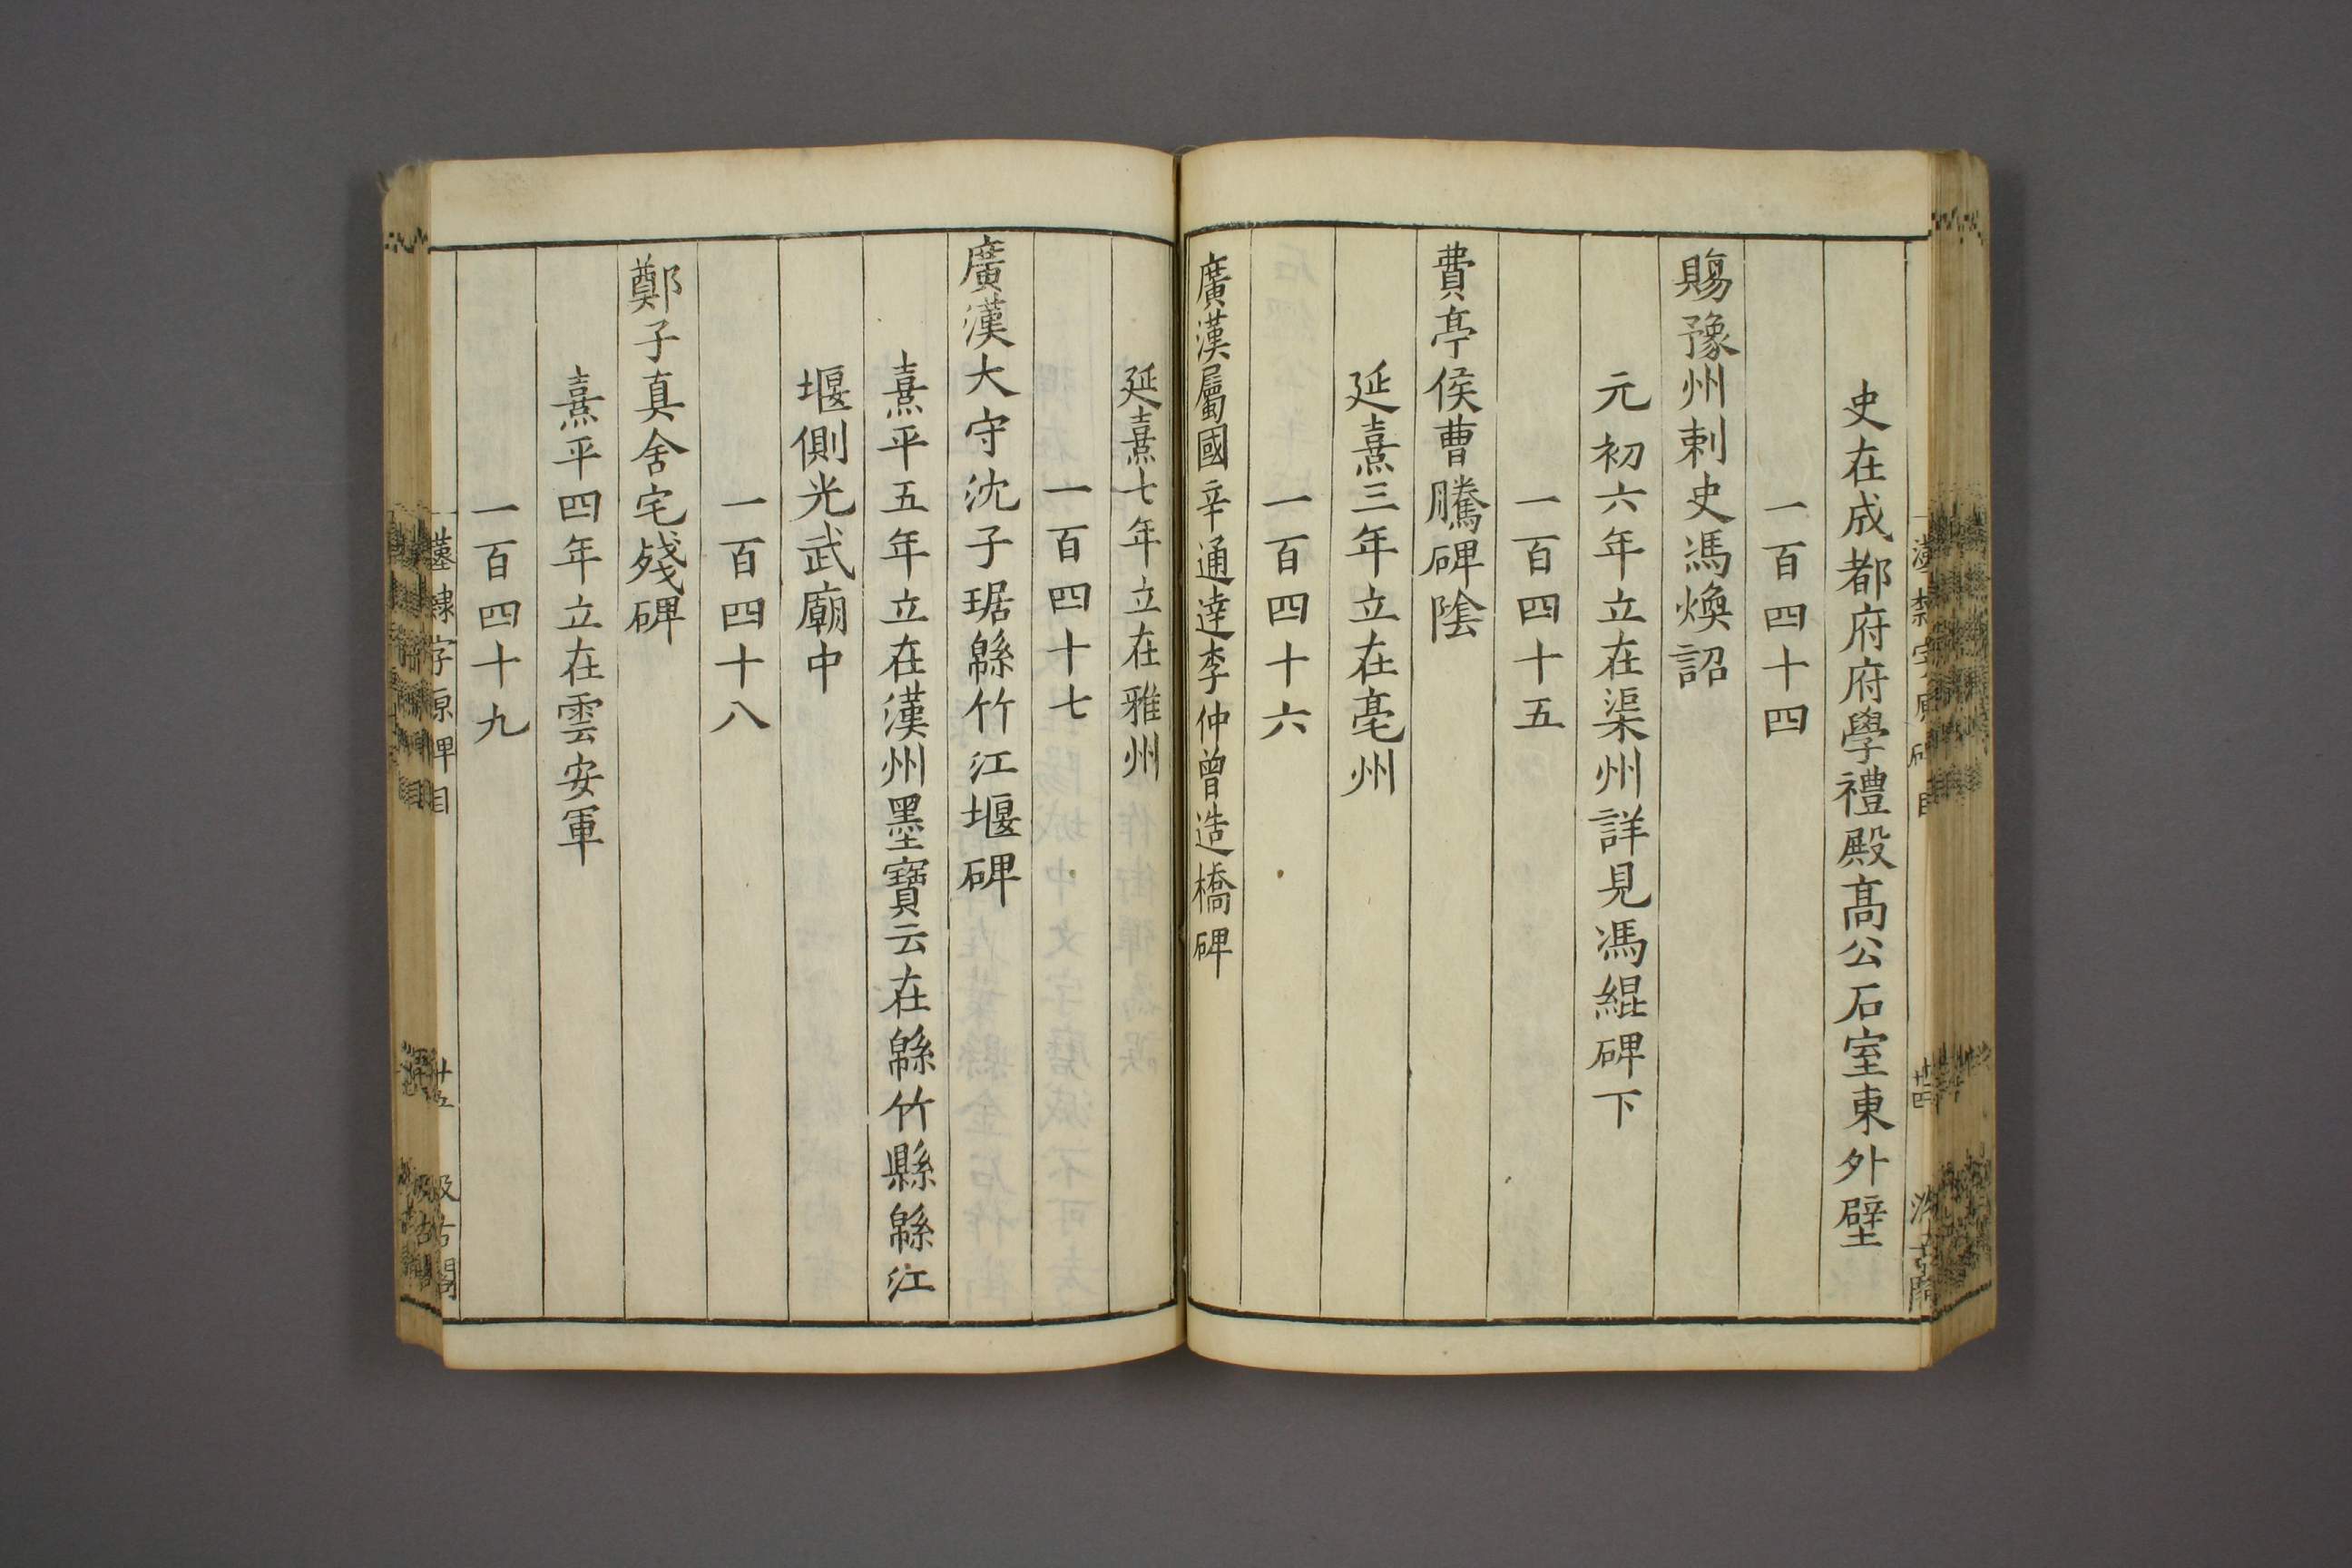 史在成都府府學禮殿髙公石室東外壁
一百四十四
賜豫州刺史馮煥詔
元初六年立在渠州詳見馮緄碑下
一百四十五
費亭侯曹騰碑陰
延熹三年立在亳州
一百四十六
廣漢屬國辛通達李仲曾造橋碑
延熹七年立在雅州
一百四十七
廣漢大守沈子琚緜竹江堰碑
熹平五年立在漢州墨寶云在緜竹縣緜江
堰側光武廟中
一百四十八
鄭子真舍宅殘碑
熹平四年立在雲安軍
一百四十九
隸字原碑目
廿五
汲古閣